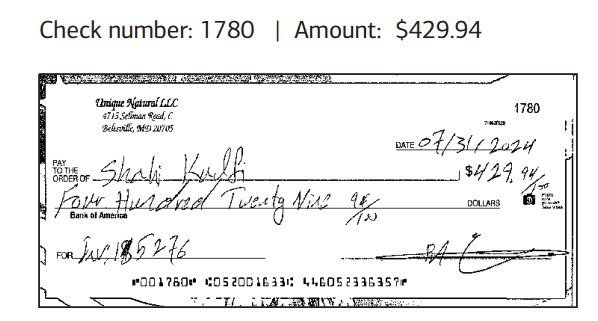 Check number: 1780 | Amount: $429.94
Unique Natural LLC
4715 Sellman Road, C
Beltsville, MD 20705
1780
DATE 07/31/2024
PAY TO THE ORDER OF Shahi Kulfi $429.94/100
Four Hundred Twenty Nine 94/100 DOLLARS
Bank of America
FOR Inv. 185276
⑈001780⑈ ⑆052001633⑆ 446052336357⑈